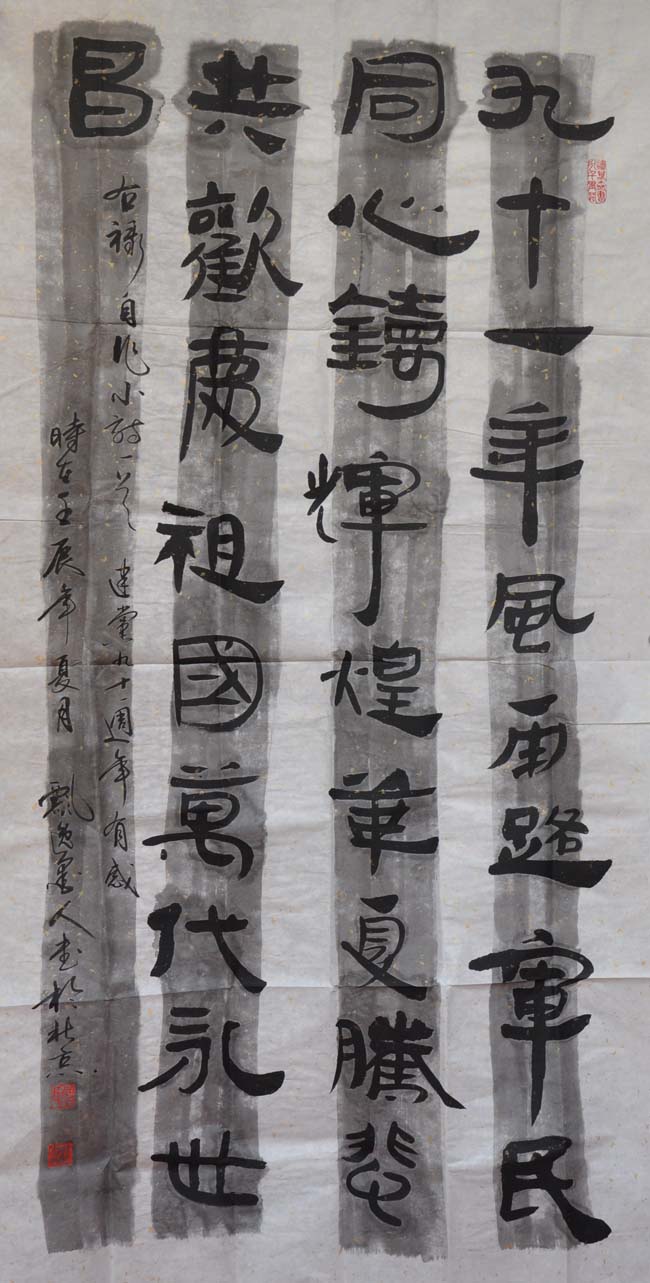 九十一年風雨路軍民
同心鑄輝煌華夏騰
共歡慶祖國萬代永世
昌
右禄自作小詩一首 建黨九十一週年有感
時在壬辰年夏月 飄逸墨人書於北京